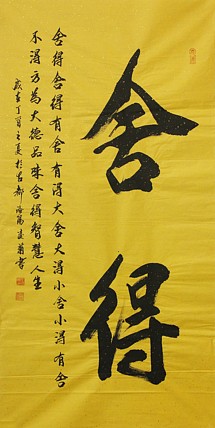 舍得
舍得舍得有舍有得大舍大得小舍小得有舍
不得方为大德品味舍得智慧人生
岁在丁酉之夏於古都洛阳